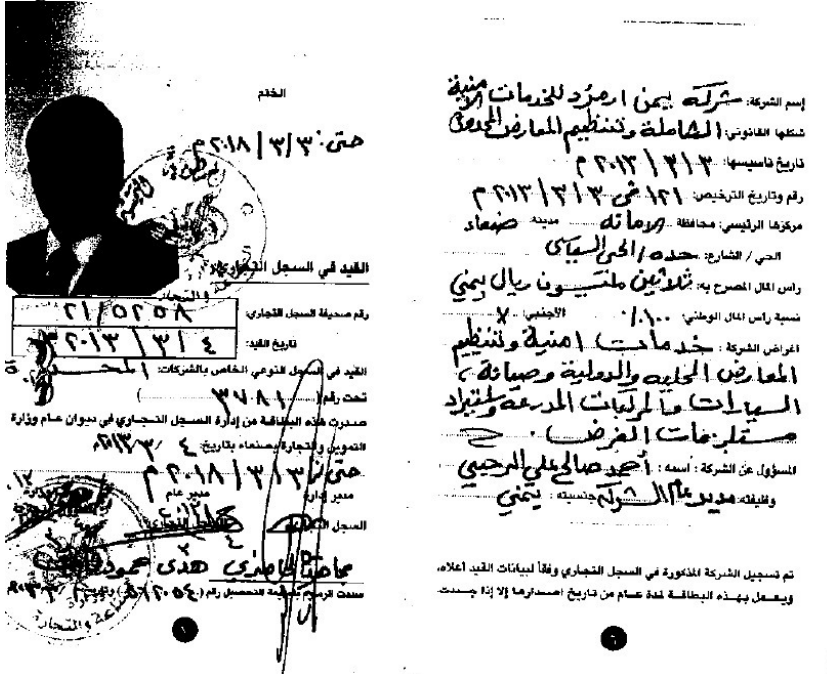 إسم الشركة: شركة يمن ارمرد للخدمات الأمنية
شكلها القانوني: الشاملة وتنظيم المعارض المحدودة
تاريخ تاسيسها: ٣ / ٣ / ٢٠١٣ م
رقم وتاريخ الترخيص: ١٢١ في ٣ / ٣ / ٢٠١٣ م
مركزها الرئيسي: محافظة الامانه مدينة صنعاء
الحي / الشارع: حده / الحي السياسي
راس المال المصرح به: ثلاثين مليون ريال يمني
نسبة راس المال الوطني: ١٠٠٪ الأجنبي: ×
اغراض الشركة: خدمات امنية وتنظيم
المعارض المحليه والدولية وصيانة
السيارات والمركبات المدرعه واستيراد
مستلزمات الغرض.
المسؤول عن الشركة: اسمه: أحمد صالح علي الرحبي
وظيفته: مدير عام الشركة جنسيته: يمني
تم تسجيل الشركة المذكورة في السجل التجاري وفقاً لبيانات القيد أعلاه،
ويعمل بهذه البطاقة لمدة عام من تاريخ اصدارها إلا إذا جددت.
٦
الختم
حتى: ٣ / ٣ / ٢٠١٨ م
القيد في السجل التجاري:
رقم صحيفة السجل التجاري: ٢١/٥٢٥٨
تاريخ القيد: ٤ / ٣ / ٢٠١٣
القيد في السجل النوعي الخاص بالشركات:
تحت رقم ( ٣٧٨١ )
صدرت هذه البطاقة من إدارة السجل التجاري في ديوان عام وزارة
التموين والتجارة بصنعاء بتاريخ: ٤ / ٣ / ٢٠١٣
حتى ٣ / ٣ / ٢٠١٨ م
مدير إدارة مدير عام
السجل
هدى محمود
سددت الرسوم بقسيمة التحصيل رقم
والتجارة